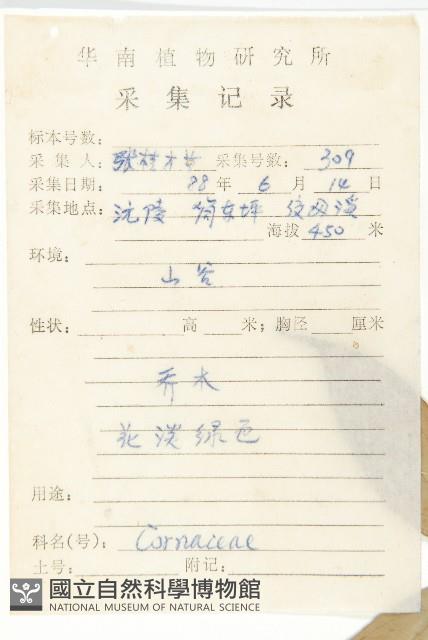 华南植物研究所
采集记录
标本号数:
采集人: 张桂才 采集号数: 309
采集日期: 88年 6月 14日
采集地点: 沅陵
海拔 450 米
环境:
山谷
性状: 高 米; 胸径 厘米
乔木
花淡绿色
用途:
科名(号): Cornaceae
土号: 附记:
國立自然科學博物館
NATIONAL MUSEUM OF NATURAL SCIENCE